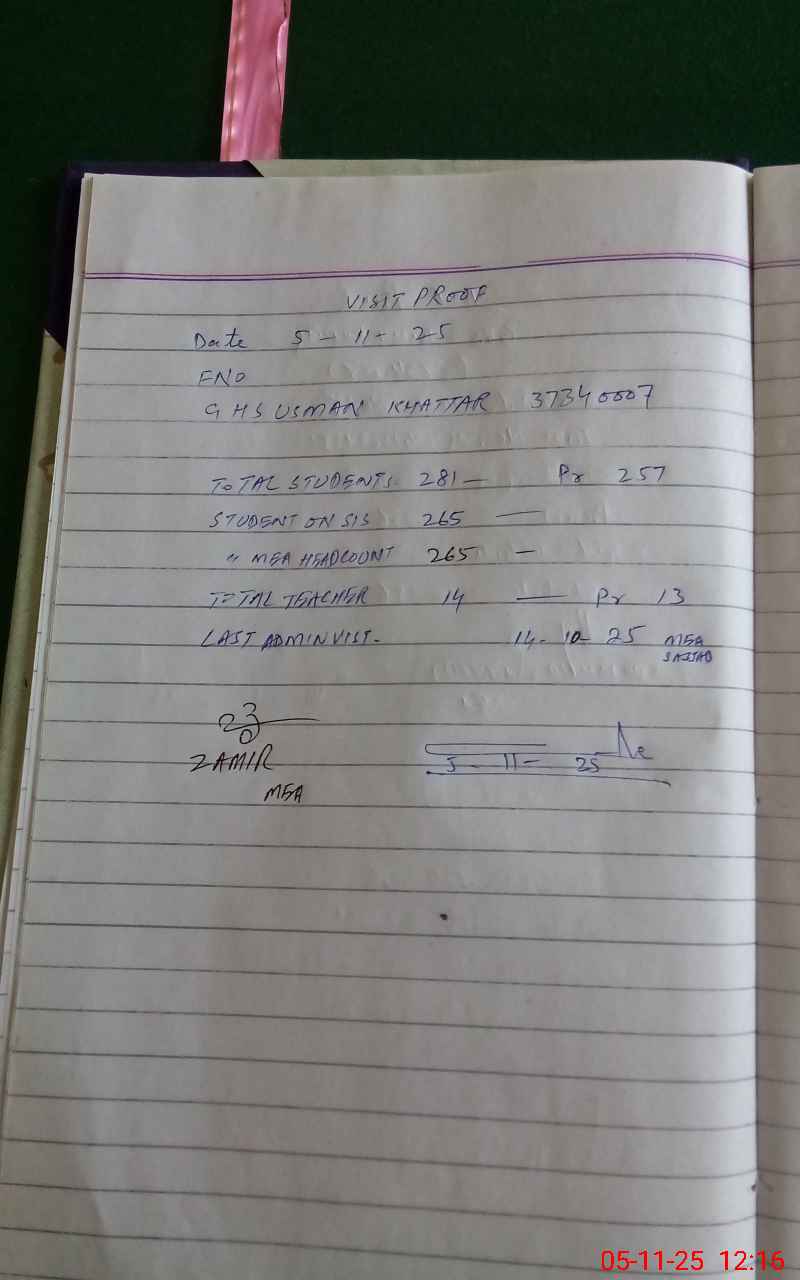 VISIT PROOF
Date 5 - 11 - 25
FNO
GHS USMAN KHATTAR 37340007
TOTAL STUDENTS 281 — Pr 257
STUDENT ON SIS 265 —
" MEA HEADCOUNT 265 —
TOTAL TEACHER 14 — Pr 13
LAST ADMIN VIST - 14 - 10 - 25 MEA
SAJJAD
ZAMIR
MEA
5 - 11 - 25
05-11-25 12:16